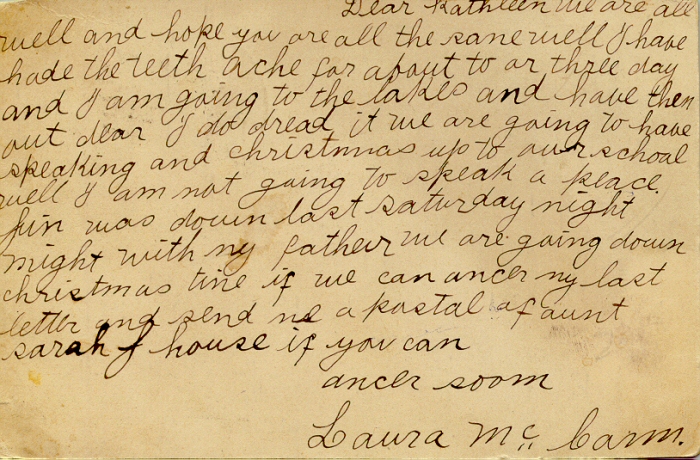 Dear Kathleen we are all
well and hope you are all the sane well I have
hade the teeth ache for about to or three day
and I am going to the lakes and have then
out dear I do dread it we are going to have
speaking and christmas up to our school
well I am not going to speak a peace
was down last saturday night
might with ny father we are going down
christmas tine if we can ancer ny last
letter and send ne a postal of aunt
sarah J house if you can
ancer soom
Laura Mc Carm.